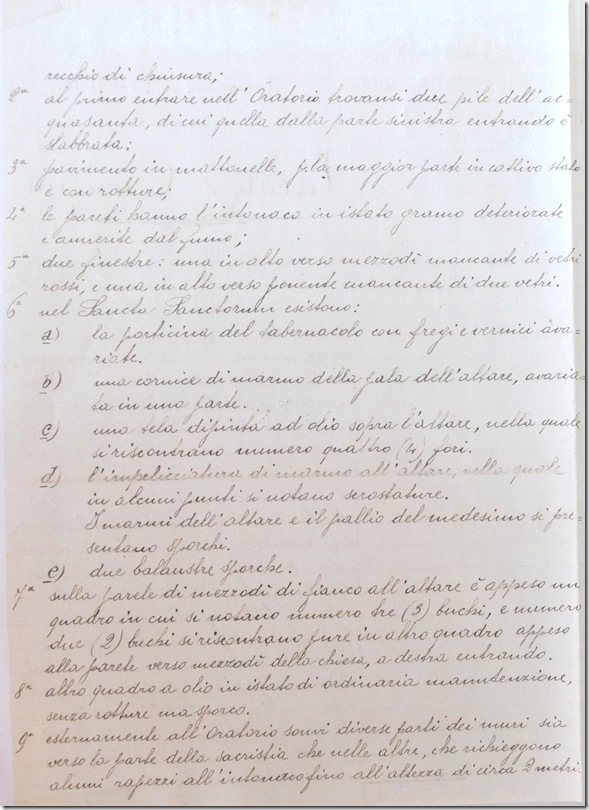 recchio di chiusura;
2ª al primo entrare nell'Oratorio trovansi due pile dell'ac=
quasanta, di cui quella dalla parte sinistra entrando è
slabbrata;
3ª pavimento in mattonelle, p. la maggior parte in cattivo stato
e con rotture;
4ª le pareti hanno l'intonaco in istato gramo deteriorate
e annerite dal fumo;
5ª due finestre: una in alto verso mezzodì mancante di vetri
rossi, e una in alto verso ponente mancante di due vetri.
6ª nel Sancta Sanctorum esistono:
a) la porticina del tabernacolo con fregi e vernici ava=
riate.
b) una cornice di marmo della pala dell'altare, avaria=
ta in una parte.
c) una tela dipinta ad olio sopra l'altare, nella quale
si riscontrano numero quattro (4) fori.
d) l'impelicciatura di marmo all'altare, nella quale
in alcuni punti si notano scrostature.
I marmi dell'altare e il pallio del medesimo si pre=
sentano sporchi.
e) due balaustre sporche.
7ª sulla parete di mezzodì di fianco all'altare è appeso un
quadro in cui si notano numero tre (3) buchi, e numero
due (2) buchi si riscontrano pure in altro quadro appeso
alla parete verso mezzodì della chiesa, a destra entrando.
8ª altro quadro a olio in istato di ordinaria manutenzione,
senza rotture ma sporco.
9ª esternamente all'Oratorio sonvi diverse parti dei muri sia
verso la parte della sacristia che nelle altre, che richieggono
alcuni rapezzi all'intonaco fino all'altezza di circa 2 metri.